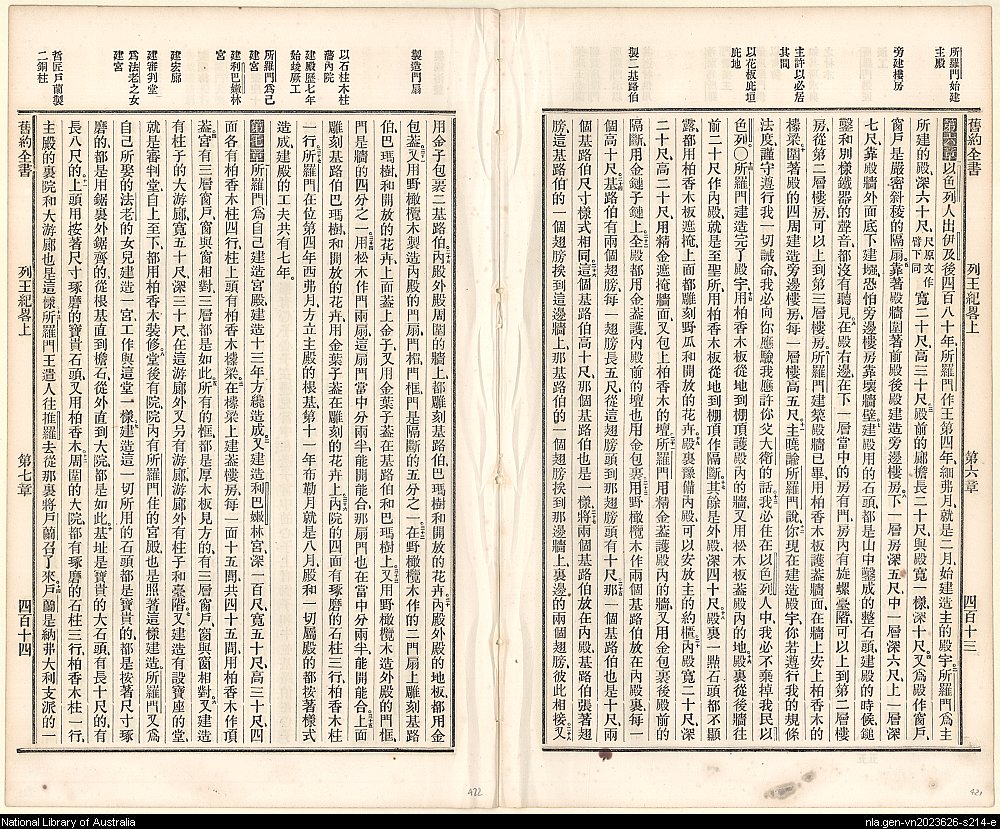 所羅門始建
主殿
旁建樓房
主許以必居
其間
以花板庇垣
庇地
製二基路伯
舊約全書 列王紀畧上 第六章 四百十三
第六章以色列人出伊及後四百八十年所羅門作王第四年細弗月就是二月始建造主的殿宇所羅門爲主
所建的殿深六十尺尺原文作臂下同寬二十尺高三十尺殿前的廊檐長二十尺與殿寬一樣深十尺又爲殿作窗戶
窗戶是嚴密斜稜的隔扇靠著殿牆圍著前殿後殿建造旁邊樓房下一層房深五尺中一層深六尺上一層深
七尺靠殿牆外面底下建墈恐怕旁邊樓房靠壞牆壁建殿用的石頭都是山中鑿成的整石頭建殿的時候鎚
鑿和別樣鐵器的聲音都沒有聽見在殿右邊在下一層當中的房有門房內有旋螺臺階可以上到第二層樓
房從第二層樓房可以上到第三層樓房所羅門建築殿牆已畢用柏香木板護蓋牆面在牆上安上柏香木的
檁梁圍著殿的四周建造旁邊樓房每一層樓高五尺主曉諭所羅門說你現在建造殿宇你若遵行我的規條
法度謹守遵行我一切誡命我必向你應驗我應許你父大衛的話我必住在以色列人中我必不棄掉我民以
色列〇所羅門建造完了殿宇用柏香木板從地到棚頂護殿內的牆又用松木板蓋殿內的地殿裏從後牆往
前二十尺作內殿就是至聖所用柏香木板從地到棚頂作隔斷其餘是外殿深四十尺殿裏一點石頭都不顯
露都用柏香木板遮掩上面都雕刻野瓜和開放的花卉殿裏豫備內殿可以安放主的約櫃內殿寬二十尺深
二十尺高二十尺用精金遮掩牆面又包上柏香木的壇所羅門用精金蓋護殿內的牆又用金包裹後殿前的
隔斷用金鏈子鏈上全殿都用金蓋護內殿前的壇也用金包裹用野橄欖木作兩個基路伯放在內殿裏每一
個高十尺基路伯有兩個翅膀每一翅膀長五尺從這翅膀頭到那翅膀頭有十尺那一個基路伯也是十尺兩
個基路伯尺寸樣式相同這個基路伯高十尺那個基路伯也是一樣將兩個基路伯放在內殿基路伯張著翅
膀這基路伯的一個翅膀挨到這邊牆上那基路伯的一個翅膀挨到那邊牆上裏邊的兩個翅膀彼此相接又
製造門扇
以石柱木柱
蕃內院
建殿歷七年
始竣厥工
所羅門爲己
建宮
建利巴嫩林
宮
建宏廊
建審判堂
爲法老之女
建宮
哲匠戶蘭製
二銅柱
用金子包裹二基路伯內殿外殿周圍的牆上都雕刻基路伯巴瑪樹和開放的花卉內殿外殿的地板都用金
包蓋又用野橄欖木製造內殿的門扇門楣門框門是隔斷的五分之一在野橄欖木作的二門扇上雕刻基路
伯巴瑪樹和開放的花卉上面蓋上金子又用金葉子蓋在基路伯和巴瑪樹上又用野橄欖木造外殿的門框
門是牆的四分之一用松木作門兩扇這扇門當中分兩半能開能合那扇門也在當中分兩半能開能合上面
雕刻基路伯巴瑪樹和開放的花卉用金葉子蓋在雕刻的花卉上內院的四面有琢磨的石柱三行柏香木柱
一行所羅門在位第四年西弗月方立主殿的根基第十一年布勒月就是八月殿和一切屬殿的都按著樣式
造成建殿的工夫共有七年
第七章所羅門爲自己建造宮殿建造十三年方纔造成又建造利巴嫩林宮深一百尺寬五十尺高三十尺四
面各有柏香木柱四行柱上頭有柏香木檁梁在檁梁上建蓋樓房每一面十五間共四十五間用柏香木作頂
蓋宮有三層窗戶窗與窗相對三層都是如此所有的框都是厚木板見方的有三層窗戶窗與窗相對又建造
有柱子的大游廊寬五十尺深三十尺在這游廊外又另有游廊游廊外有柱子和臺階又建造有設寶座的堂
就是審判堂自上至下都用柏香木裝修堂後有院院內有所羅門住的宮殿也是照著這樣建造所羅門又爲
自己所娶的法老的女兒建造一宮工作與這堂一樣建造這一切所用的石頭都是寶貴的都是按著尺寸琢
磨的都是用鋸裏外鋸齊的從根基直到檐石從外直到大院都是如此基址是寶貴的大石頭有長十尺的有
長八尺的上頭用按著尺寸琢磨的寶貴石頭又用柏香木周圍的大院都有琢磨的石柱三行柏香木柱一行
主殿的裏院和大游廊也是這樣所羅門王遣人往推羅去從那裏將戶蘭召了來戶蘭是納弗大利支派的一
舊約全書 列王紀畧上 第七章 四百十四
422
421
National Library of Australia
nla.gen-vn2023626-s214-e